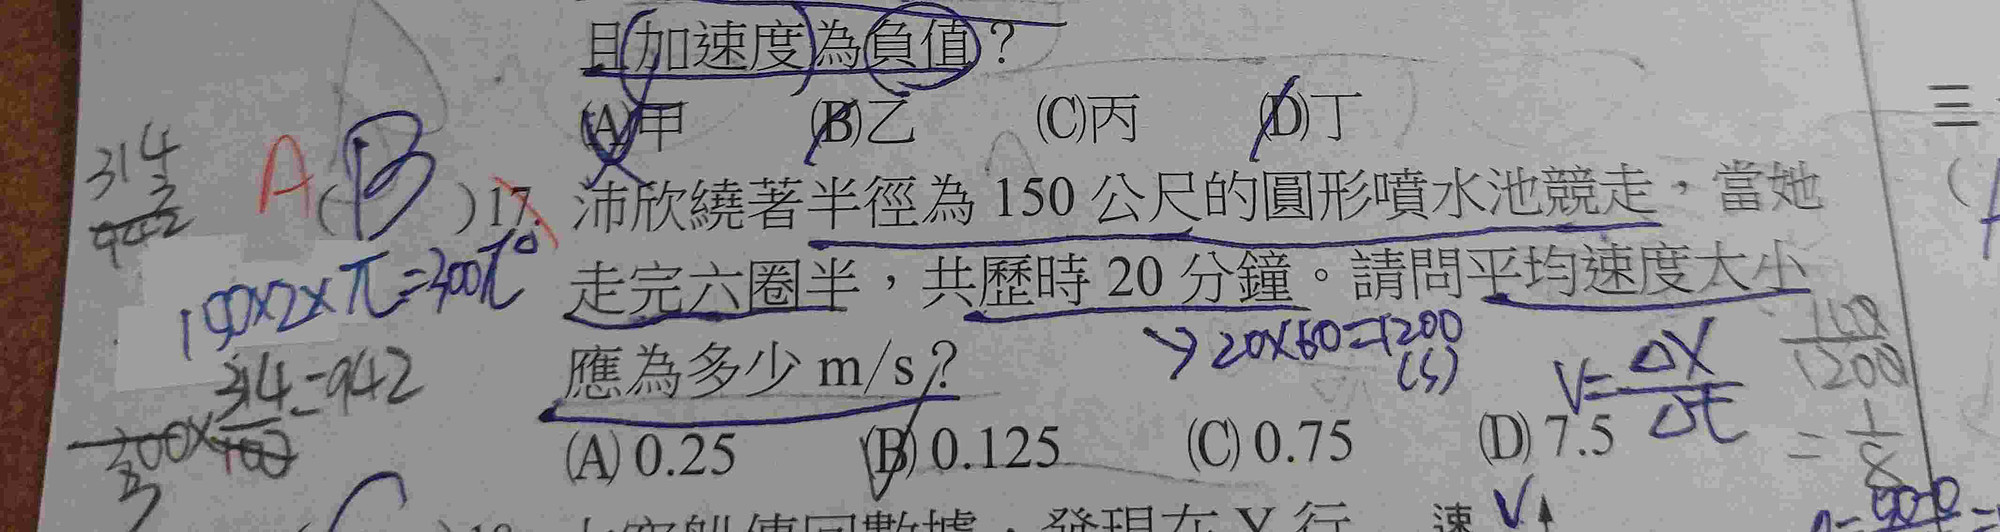 且加速度為負值？
(A)甲 (B)乙 (C)丙 (D)丁
三
314
3
942
A(B)17. 沛欣繞著半徑為 150 公尺的圓形噴水池競走，當她
走完六圈半，共歷時 20 分鐘。請問平均速度大小
150×2×π=300π
→20×60=1200
(s)
應為多少 m/s？
V=ΔX/Δt
150/1200
=1/8
300×314/100=942
(A) 0.25 (B) 0.125 (C) 0.75 (D) 7.5
速 V↑